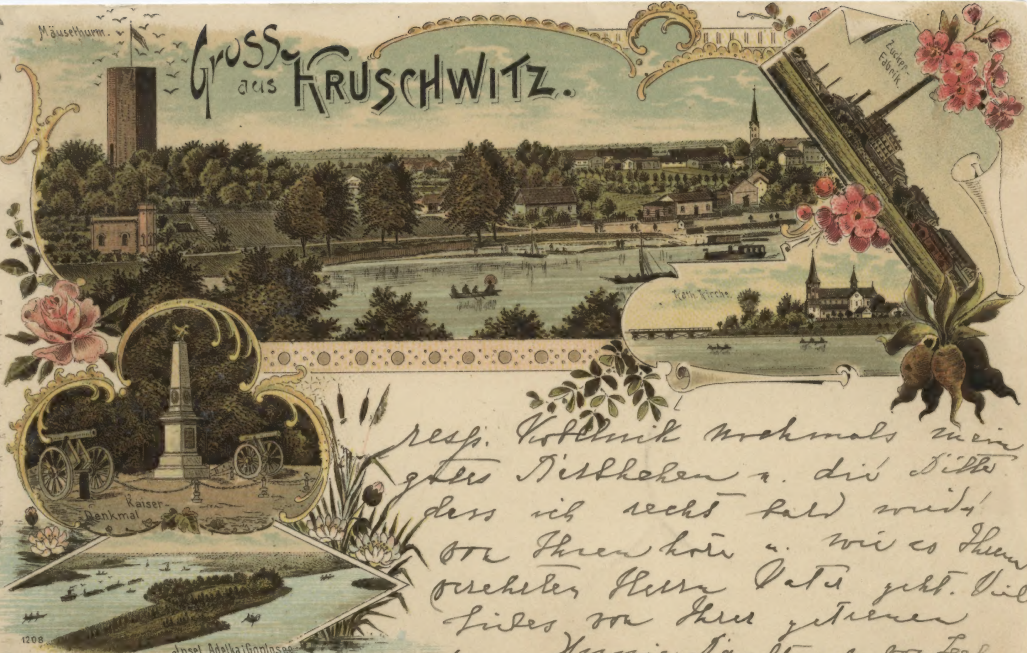 Mäusethurm.
Gruss
aus KRUSCHWITZ.
Zucker-
Fabrik
Kath. Kirche
Kaiser-
Denkmal
1208
Insel Adelka i. Goplosee
resp. nochmals mein
gutes u. die Bitte
dass ich recht bald wieder
von Ihnen höre u. wie es Ihrem
verehrten Herrn Vater geht. Viel
liebes von Ihrer getreuen